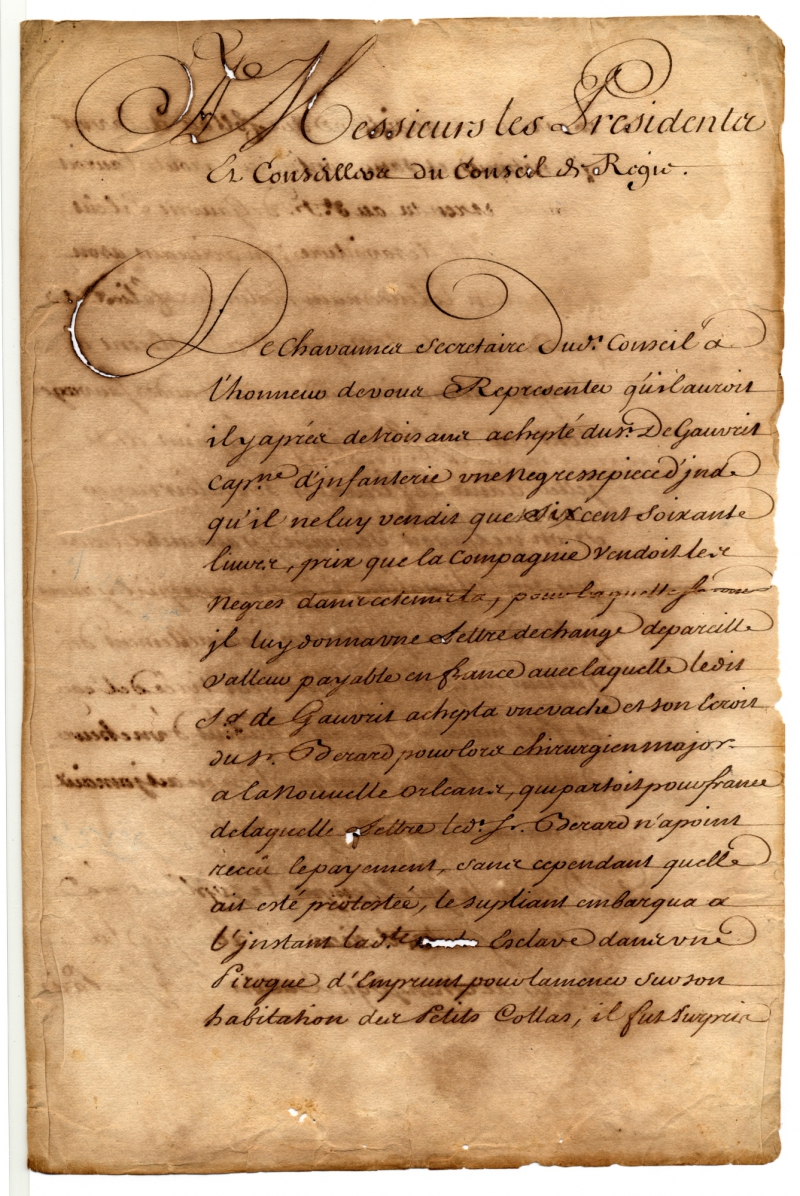 A Messieurs les Presidents
Et Conseillers du Conseil de Regie.
De Chavannes Secretaire dud.t Conseil a
l'honneur de vous Representer qu'il auroit
il y a prés de trois ans achepté du S.r De Gauvrit
Cap.ne d'jnfanterie vne Negresse piece d'jnde
qu'il ne luy vendit que Six cent soixante
livres, prix que la Compagnie vendoit les
Negres dans ce tems la, pour laquelle
jl luy donna vne Lettre de change de pareille
valleur payable en france avec laquelle ledit
S.r de Gauvrit achepta vne vache et son
du S.r Berard pour lors chirurgien major
a la Nouvelle Orleans, qui partoit pour france
de laquelle Lettre led.t S.r Berard n'a point
receu le payement, sans cependant quelle
ait esté protestée, le supliant embarqua a
l'jnstant lad.te Esclave dans vne
Pirogue d'Emprunt pour lamener sur son
habitation des Petits Collas, il fut surpris